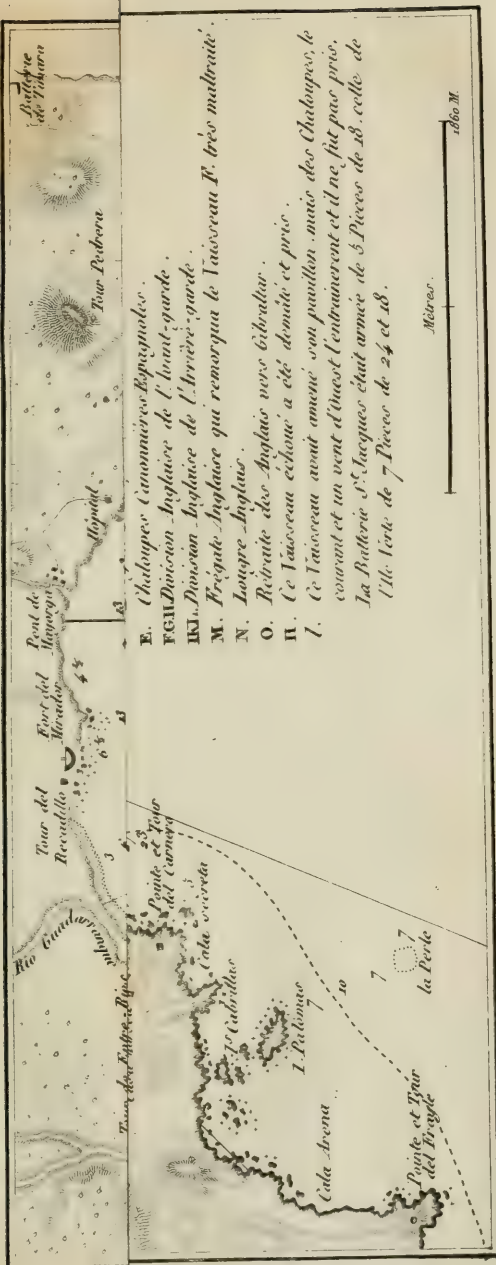 Batterie
de Timara
Tour Pedrera
Hôpital
Pont de
Mayorga
Fort del
Mirador
Tour del
Rocadillo
Rio Guadarranque
13
4½
6½
13
3
Tour des Entre-Rios
Pointe et Tour
del Carnero
Cala Secreta
Iˢ Cabrillas
I. Palomas
7
10
7
7
la Perle
Cala Arena
Pointe et Tour
del Frayle
E. Chaloupes Canonnières Espagnoles.
F.G.H. Division Anglaise de l'Avant-garde.
I.K.L. Division Anglaise de l'Arrière-garde.
M. Frégate Anglaise qui remorqua le Vaisseau F. très maltraité.
N. Lougre Anglais.
O. Retraite des Anglais vers Gibraltar.
H. Ce Vaisseau échoué a été démâté et pris.
I. Ce Vaisseau avait amené son pavillon, mais des Chaloupes, le
courant et un vent d'Ouest l'entrainerent et il ne fut pas pris.
La Batterie Sᵗ Jacques était armée de 5 Pièces de 18. celle de
l'Ile Verte de 7 Pièces de 24 et 18.
Mètres.
1860 M.